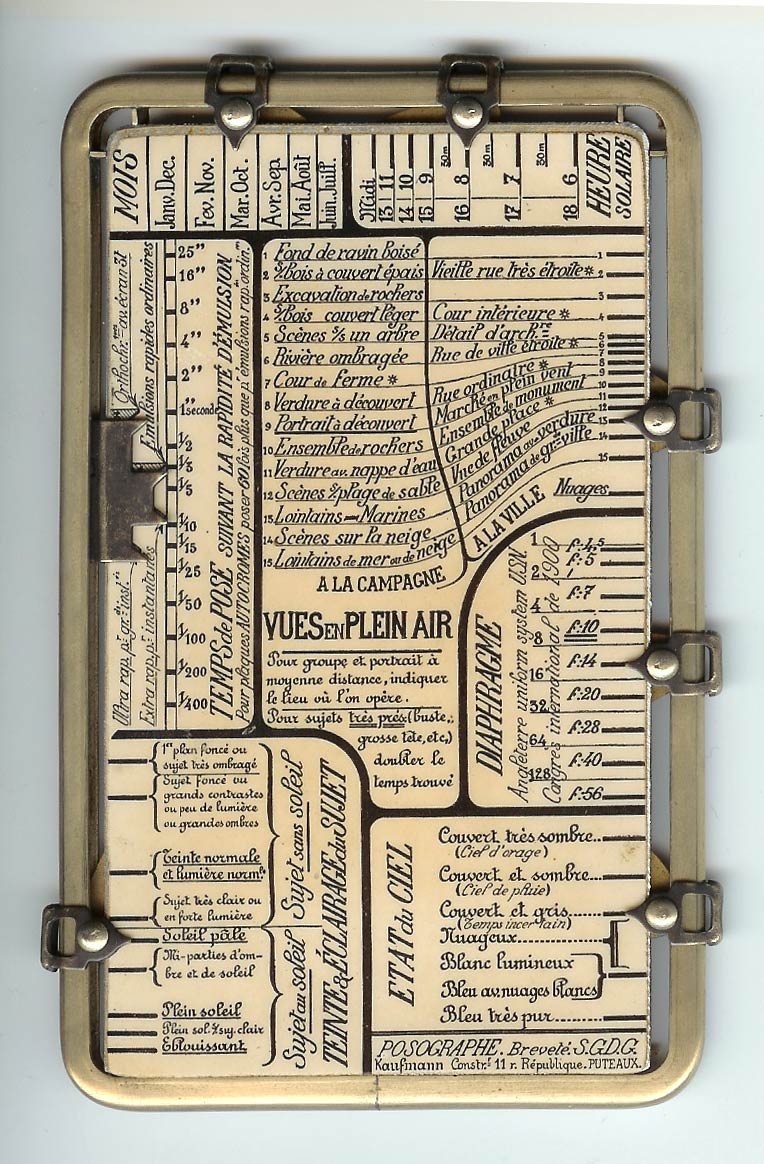 MOIS
Janv. Dec.
Fev. Nov.
Mar. Oct.
Avr. Sep.
Mai. Août
Juin. Juill.
Midi
13 11
14 10
15 9
30m
16 8
30m
17 7
30m
18 6
HEURE
SOLAIRE
Emulsions rapides ordinaires
Extra rap. pr. instantanées
25"
16"
8"
4"
2"
1"seconde
1/2
1/3
1/5
1/10
1/15
1/25
1/50
1/100
1/200
1/400
TEMPS de POSE SUIVANT LA RAPIDITÉ D'ÉMULSION
Pour plaques AUTOCROMES poser 60 fois plus que pr. émulsions rap. ordin.
1 Fond de ravin boisé
2 S/Bois à couvert épais
3 Excavation de rochers
4 S/Bois couvert léger
5 Scènes s/s un arbre
6 Rivière ombragée
7 Cour de ferme *
8 Verdure à découvert
9 Portrait à découvert
10 Ensemble de rochers
11 Verdure av. nappe d'eau
12 Scènes s/plage de sable
13 Lointains - Marines
14 Scènes sur la neige
15 Lointains de mer ou de neige
A LA CAMPAGNE
Vieille rue très étroite *
Cour intérieure *
Détail d'arch.re
Rue de ville étroite *
Rue ordinaire *
Marché en plein vent
Ensemble de monument
Grande place *
Vue de fleuve
Panorama avec verdure
Panorama de gr.de ville
Nuages
A LA VILLE
1
2
3
4
5
6
7
8
9
10
11
12
13
14
15
VUES EN PLEIN AIR
Pour groupe et portrait à
moyenne distance, indiquer
le lieu où l'on opère.
Pour sujets très près: (buste,
grosse tête, etc,)
doubler le
temps trouvé
DIAPHRAGME
Angleterre uniform system U.S.N.
Congrès international de 1900
1
2
4
8
16
32
64
128
f:4,5
f:5
f:7
f:10
f:14
f:20
f:28
f:40
f:56
1er plan foncé ou
sujet très ombragé
Sujet foncé ou
grands contrastes
ou peu de lumière
ou grandes ombres
Teinte normale
et lumière norm.le
Sujet très clair ou
en forte lumière
Sujet sans soleil
Soleil pâle
Mi-parties d'om-
bre et de soleil
Plein soleil
Plein sol. s/suj. clair
Eblouissant
Sujet au soleil
TEINTE & ÉCLAIRAGE du SUJET
ETAT du CIEL
Couvert très sombre
(Ciel d'orage)
Couvert et sombre
(Ciel de pluie)
Couvert et gris
(Temps incertain)
Nuageux
Blanc lumineux
Bleu av. nuages blancs
Bleu très pur
POSOGRAPHE. Breveté. S.G.D.G.
Kaufmann Constr.r 11 r. République. PUTEAUX.